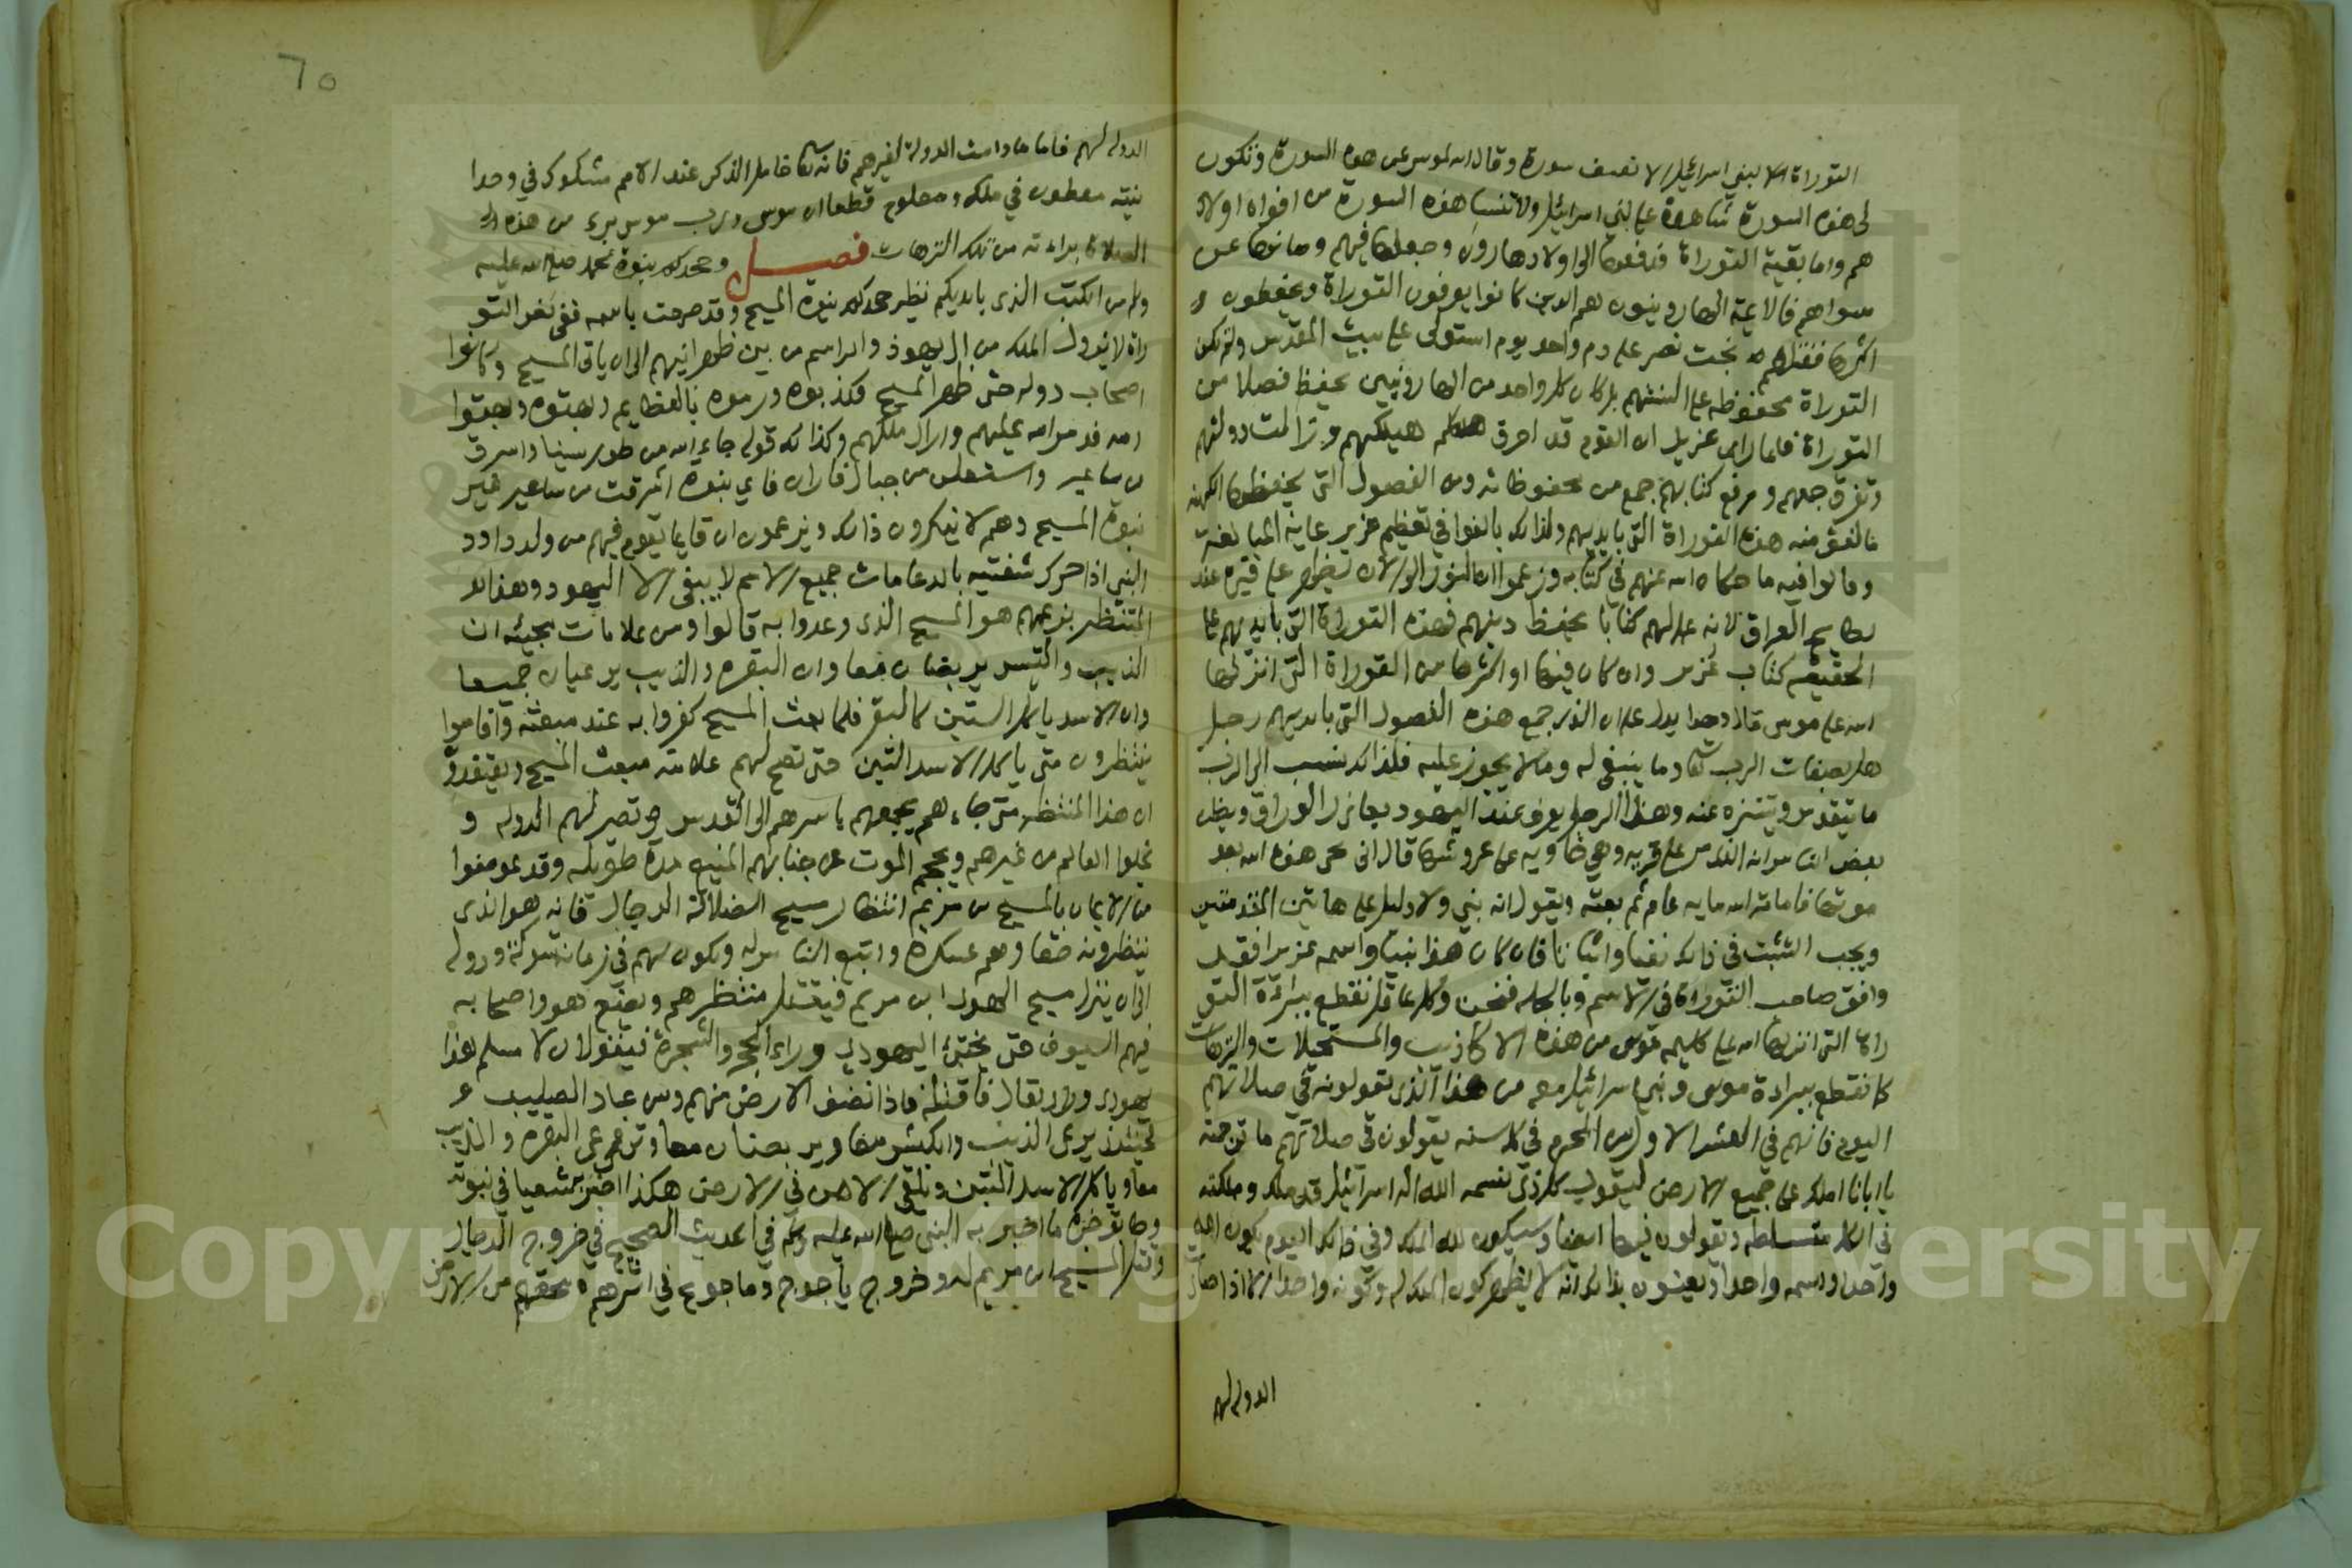 التوراة الا لبني اسرائيل الا نصف سورة وقال الله لموسى عن هذه السورة وتكون
لي هذه السورة شاهدة على بني اسرائيل ولا تنسا هذه السورة من افواه اولاد
هم واما بقية التوراة فدفعها الى اولاد هارون وجعلها فيهم وصانها عن
سواهم فالايمة الهارونيون هم الدين كانوا يعرفون التوراة ويحفظون
اكثرها فقتلهم بخت نصر على دم واحد يوم استولى على بيت المقدس ولم تكن
التوراة محفوظه على السنتهم بل كان كل واحد من الهارونيين يحفظ فصلا من
التوراة فلما راى عزير ان القوم قد احرق هيكلهم وزالت دولتهم
وتفرق جمعهم ورفع كتابهم جمع من محفوظاته ومن الفصول التي يحفظها الكهنة
ما لفق منه هذه التوراة التي بايديهم ولذلك بالغوا في تعظيم عزير غاية المبالغة
وقالوا فيه ما حكاه الله عنهم في كتابه وزعموا ان النور الى الان يظهر على قبره عند
بطايح العراق لانه عمل لهم كتابا يحفظ دينهم فهذه التوراة التي بايديهم على
الحقيقه كتاب عزير وان كان فيها او اكثرها من التوراة التي انزلها
الله على موسى قالوا وهذا يدل على ان الذي جمع هذه الفصول التي بايديهم رجل
جاهل بصفات الرب تعالى وما ينبغي له وما لا يجوز عليه فلذلك نسب الى الرب
ما يتقدس ويتنزه عنه وهذا الرجل يعرف عند اليهود بعازر الوراق ويظن
بعض الناس انه الذي مر على قرية وهي خاوية على عروشها قال انى يحي هذه الله بعد
موتها فاماته الله مايه عام ثم بعثه ويقول انه نبي ولا دليل على هاتين المقدمتين
ويجب التثبت في ذلك نفيا واثباتا فان كان هذا نبيا واسمه عزير فقد
وافق صاحب التوراة في الاسم وبالجمله فنحن وكل عاقل نقطع ببراءة التو
راة التي انزلها الله على كليمه موسى من هذه الاكاذيب والمستحيلات والترهات
كما نقطع ببراءة موسى وبني اسرائيل معه من هذا الذي تقولونه في صلاتهم
اليوم فانهم في العشر الاول من المحرم في كل سنه يقولون في صلاتهم ما ترجمته
يا ابانا املك على جميع الارض ليقول كل ذي نسمه الله اله اسرائيل قد ملك ومملكته
في الكل متسلطه ويقولون فيها ايضا وسيكون لله الملك وفي ذلك اليوم يكون الله
واحدا واسمه واحدا ويعنون بذلك انه لا يظهر كون الملك له وكونه واحدا الا اذا صارت
الدوله لهم
٦٥
الدوله لهم فاما ما دامت الدولة لغيرهم فانه تعالى خامل الذكر عند الامم مشكوك في وحدا
نيته مطعون في ملكه ومعلوم قطعا ان موسى ورب موسى برء من هذه
الصلاة براءته من تلك الترهات فصـــل وجحدكم نبوة محمد صلى الله عليه
ولم من الكتب الذي بايديكم نظير جحدكم نبوة المسيح وقد صرحت باسمه ففي نص التو
راة لا يزول الملك من ال يهوذ والراسم من بين ظهرانيهم الى ان ياتي المسيح وكانوا
اصحاب دوله حتى ظهر المسيح فكذبوه ورموه بالعظايم وبهتوه وبهتوا
امه فدمر الله عليهم وازال ملكهم وكذلك قوله جاء الله من طور سينا واشرق
من ساعير واستعلن من جبال فاران فاي نبوة اشرقت من ساعير غير
نبوة المسيح وهم لا ينكرون ذلك ويزعمون ان قايما يقوم فيهم من ولد داود
النبي اذا حرك شفتيه بالدعا مات جميع الامم لا يبقى الا اليهود وهذا
المنتظر بزعمهم هو المسيح الذي وعدوا به قالوا ومن علامات مجيئه ان
الذيب والتيس يربضان معا وان البقره والذيب يرعيان جميعا
وان الاسد ياكل التبن كالبقر فلما بعث المسيح كفروا به عند مبعثه واقاموا
ينتظرون متى ياكل الاسد التبن حتى تصح لهم علامته مبعث المسيح ويعتقدون
ان هذا المنتظر متى جاءهم يجمعهم باسرهم الى القدس وتصير لهم الدوله و
يخلوا العالم من غيرهم ويحجم الموت عن جنابهم المنيع مدة طويله وقد عوضوا
من الايمان بالمسيح بن مريم انتظار مسيح الضلالة الدجال فانه هو الذي
ينتظرونه حقا وهم عسكره واتبع الناس له ويكون لهم في زمانه شوكة ودوله
الى ان ينزل مسيح الهدى ابن مريم فيقتل منتظرهم ويضع هو واصحابه
فيهم السيوف حتى يختبئ اليهودي وراء الحجر والشجرة فيقولان يا مسلم هذا
يهودي وراي تعال فاقتله فاذا نضف الارض منهم ومن عباد الصليب
فحينئذ يرعى الذيب والكبش معا ويربضان معا وترعى البقره والذيب
معا وياكل الاسد التبن ويلقى الامن في الارض هكذا اخبر شعيا في نبوته
وطابق خبره ما اخبر به النبي صلى الله عليه وسلم في الحديث الصحيح في خروج الدجال
وقتل المسيح ابن مريم له وخروج ياجوج وماجوج في اثرهم ومحقهم من الارض
Copyright © King Saud University